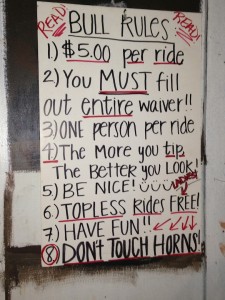 READ BULL RULES READ!
1) $5.00 per ride
2) You MUST fill
out entire waiver!!
3) ONE person per ride
4) The More you tip
The Better you Look!
5) BE NICE!
6) TOPLESS Rides FREE!
7) HAVE FUN!!
8) DON'T TOUCH HORNS!